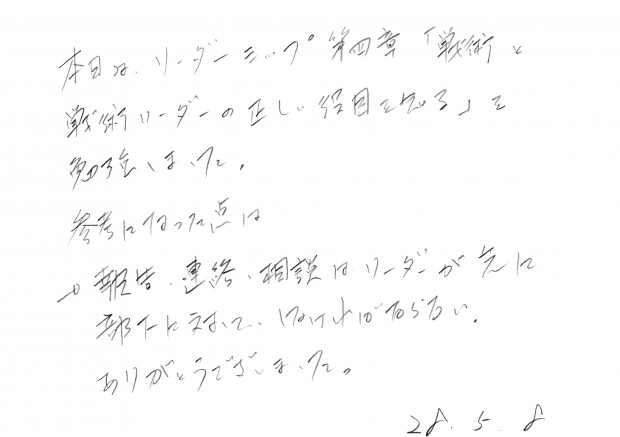 本日は、リーダーシップ第四章「戦術と
戦術リーダーの正しい役目を知る」を
勉強しました。
参考になった点は
→ 報告、連絡、相談はリーダーが先に
部下に対して、しなければならない。
ありがとうございました。
28. 5. 8